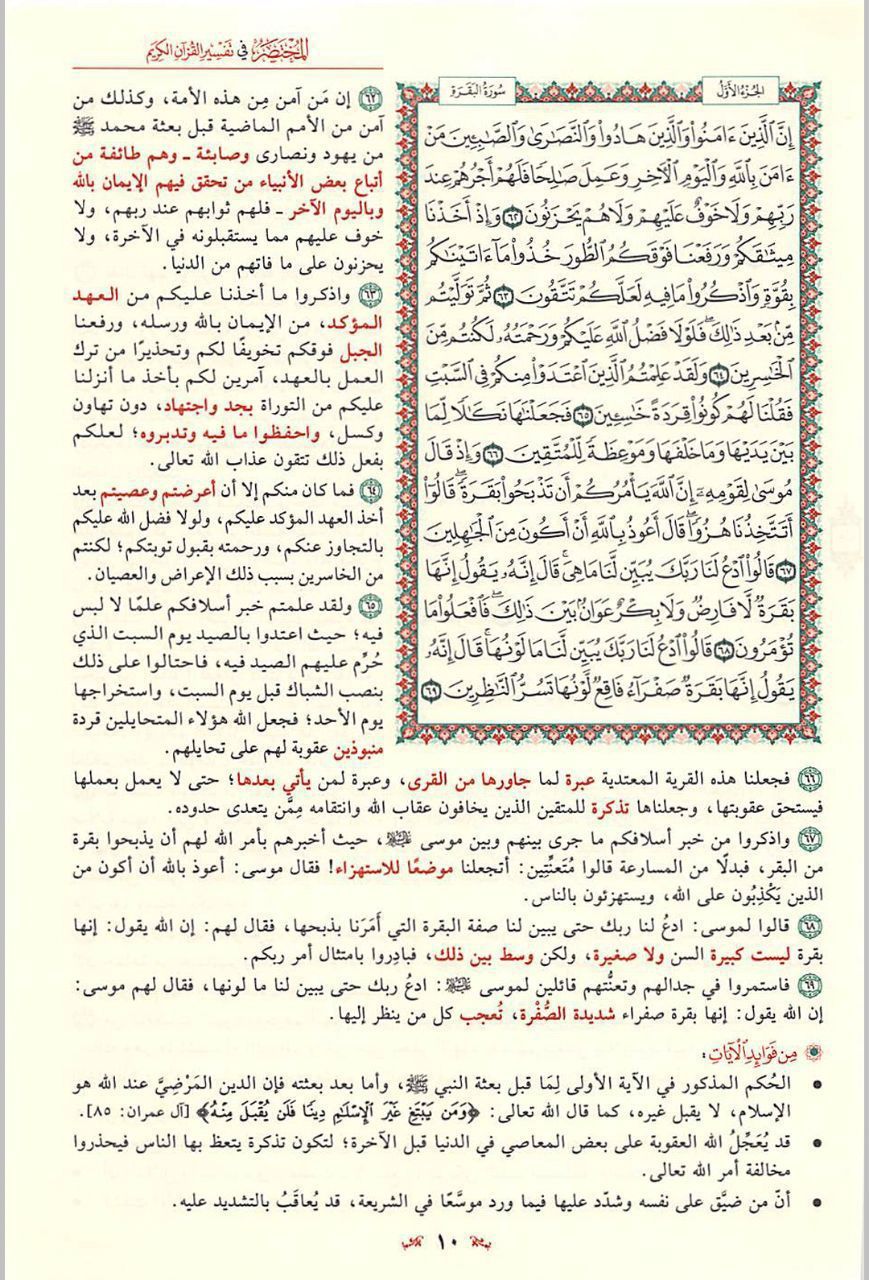 المختصر في تفسير القرآن الكريم
الجزء الأول
سورة البقرة
إِنَّ ٱلَّذِينَ ءَامَنُوا۟ وَٱلَّذِينَ هَادُوا۟ وَٱلنَّصَـٰرَىٰ وَٱلصَّـٰبِـِٔينَ مَنْ
ءَامَنَ بِٱللَّهِ وَٱلْيَوْمِ ٱلْـَٔاخِرِ وَعَمِلَ صَـٰلِحًا فَلَهُمْ أَجْرُهُمْ عِندَ
رَبِّهِمْ وَلَا خَوْفٌ عَلَيْهِمْ وَلَا هُمْ يَحْزَنُونَ ٦٢ وَإِذْ أَخَذْنَا
مِيثَـٰقَكُمْ وَرَفَعْنَا فَوْقَكُمُ ٱلطُّورَ خُذُوا۟ مَآ ءَاتَيْنَـٰكُم
بِقُوَّةٍ وَٱذْكُرُوا۟ مَا فِيهِ لَعَلَّكُمْ تَتَّقُونَ ٦٣ ثُمَّ تَوَلَّيْتُم
مِّنۢ بَعْدِ ذَٰلِكَ ۖ فَلَوْلَا فَضْلُ ٱللَّهِ عَلَيْكُمْ وَرَحْمَتُهُۥ لَكُنتُم مِّنَ
ٱلْخَـٰسِرِينَ ٦٤ وَلَقَدْ عَلِمْتُمُ ٱلَّذِينَ ٱعْتَدَوْا۟ مِنكُمْ فِى ٱلسَّبْتِ
فَقُلْنَا لَهُمْ كُونُوا۟ قِرَدَةً خَـٰسِـِٔينَ ٦٥ فَجَعَلْنَـٰهَا نَكَـٰلًا لِّمَا
بَيْنَ يَدَيْهَا وَمَا خَلْفَهَا وَمَوْعِظَةً لِّلْمُتَّقِينَ ٦٦ وَإِذْ قَالَ
مُوسَىٰ لِقَوْمِهِۦٓ إِنَّ ٱللَّهَ يَأْمُرُكُمْ أَن تَذْبَحُوا۟ بَقَرَةً ۖ قَالُوٓا۟
أَتَتَّخِذُنَا هُزُوًا ۖ قَالَ أَعُوذُ بِٱللَّهِ أَنْ أَكُونَ مِنَ ٱلْجَـٰهِلِينَ
٦٧ قَالُوا۟ ٱدْعُ لَنَا رَبَّكَ يُبَيِّن لَّنَا مَا هِىَ ۚ قَالَ إِنَّهُۥ يَقُولُ إِنَّهَا
بَقَرَةٌ لَّا فَارِضٌ وَلَا بِكْرٌ عَوَانٌۢ بَيْنَ ذَٰلِكَ ۖ فَٱفْعَلُوا۟ مَا
تُؤْمَرُونَ ٦٨ قَالُوا۟ ٱدْعُ لَنَا رَبَّكَ يُبَيِّن لَّنَا مَا لَوْنُهَا ۚ قَالَ إِنَّهُۥ
يَقُولُ إِنَّهَا بَقَرَةٌ صَفْرَآءُ فَاقِعٌ لَّوْنُهَا تَسُرُّ ٱلنَّـٰظِرِينَ ٦٩
٦٢ إن مَن آمن مِن هذه الأمة، وكذلك من
آمن من الأمم الماضية قبل بعثة محمد ﷺ
من يهود ونصارى وصابئة ـ وهم طائفة من
أتباع بعض الأنبياء من تحقق فيهم الإيمان بالله
وباليوم الآخر ـ فلهم ثوابهم عند ربهم، ولا
خوف عليهم مما يستقبلونه في الآخرة، ولا
يحزنون على ما فاتهم من الدنيا.
٦٣ واذكروا ما أخذنا عليكم من العهد
المؤكد، من الإيمان بالله ورسله، ورفعنا
الجبل فوقكم تخويفًا لكم وتحذيرًا من ترك
العمل بالعهد، آمرين لكم بأخذ ما أنزلنا
عليكم من التوراة بجد واجتهاد، دون تهاون
وكسل، واحفظوا ما فيه وتدبروه؛ لعلكم
بفعل ذلك تتقون عذاب الله تعالى.
٦٤ فما كان منكم إلا أن أعرضتم وعصيتم بعد
أخذ العهد المؤكد عليكم، ولولا فضل الله عليكم
بالتجاوز عنكم، ورحمته بقبول توبتكم؛ لكنتم
من الخاسرين بسبب ذلك الإعراض والعصيان.
٦٥ ولقد علمتم خبر أسلافكم علمًا لا لبس
فيه؛ حيث اعتدوا بالصيد يوم السبت الذي
حُرِّم عليهم الصيد فيه، فاحتالوا على ذلك
بنصب الشباك قبل يوم السبت، واستخراجها
يوم الأحد؛ فجعل الله هؤلاء المتحايلين قردة
منبوذين عقوبة لهم على تحايلهم.
٦٦ فجعلنا هذه القرية المعتدية عبرة لما جاورها من القرى، وعبرة لمن يأتي بعدها؛ حتى لا يعمل بعملها
فيستحق عقوبتها، وجعلناها تذكرة للمتقين الذين يخافون عقاب الله وانتقامه مِمَّن يتعدى حدوده.
٦٧ واذكروا من خبر أسلافكم ما جرى بينهم وبين موسى عليه السلام، حيث أخبرهم بأمر الله لهم أن يذبحوا بقرة
من البقر، فبدلًا من المسارعة قالوا مُتَعنِّتِين: أتجعلنا موضعًا للاستهزاء! فقال موسى: أعوذ بالله أن أكون من
الذين يَكْذِبُون على الله، ويستهزئون بالناس.
٦٨ قالوا لموسى: ادعُ لنا ربك حتى يبين لنا صفة البقرة التي أَمَرَنا بذبحها، فقال لهم: إن الله يقول: إنها
بقرة ليست كبيرة السن ولا صغيرة، ولكن وسط بين ذلك، فبادِروا بامتثال أمر ربكم.
٦٩ فاستمروا في جدالهم وتعنُّتهم قائلين لموسى عليه السلام: ادعُ ربك حتى يبين لنا ما لونها، فقال لهم موسى:
إن الله يقول: إنها بقرة صفراء شديدة الصُّفْرة، تُعجب كل من ينظر إليها.
من فوائد الآيات:
• الحُكم المذكور في الآية الأولى لِمَا قبل بعثة النبي ﷺ، وأما بعد بعثته فإن الدين المَرْضِيَّ عند الله هو
الإسلام، لا يقبل غيره، كما قال الله تعالى: ﴿وَمَن يَبْتَغِ غَيْرَ ٱلْإِسْلَـٰمِ دِينًا فَلَن يُقْبَلَ مِنْهُ﴾ [آل عمران: ٨٥].
• قد يُعَجِّلُ الله العقوبة على بعض المعاصي في الدنيا قبل الآخرة؛ لتكون تذكرة يتعظ بها الناس فيحذروا
مخالفة أمر الله تعالى.
• أنّ من ضيَّق على نفسه وشدّد عليها فيما ورد موسَّعًا في الشريعة، قد يُعاقَبُ بالتشديد عليه.
١٠